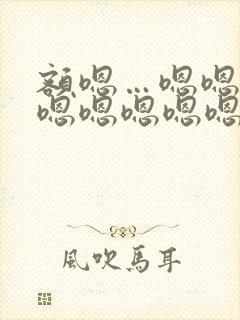 额嗯…嗯嗯
嗯嗯嗯嗯嗯
風吹馬耳